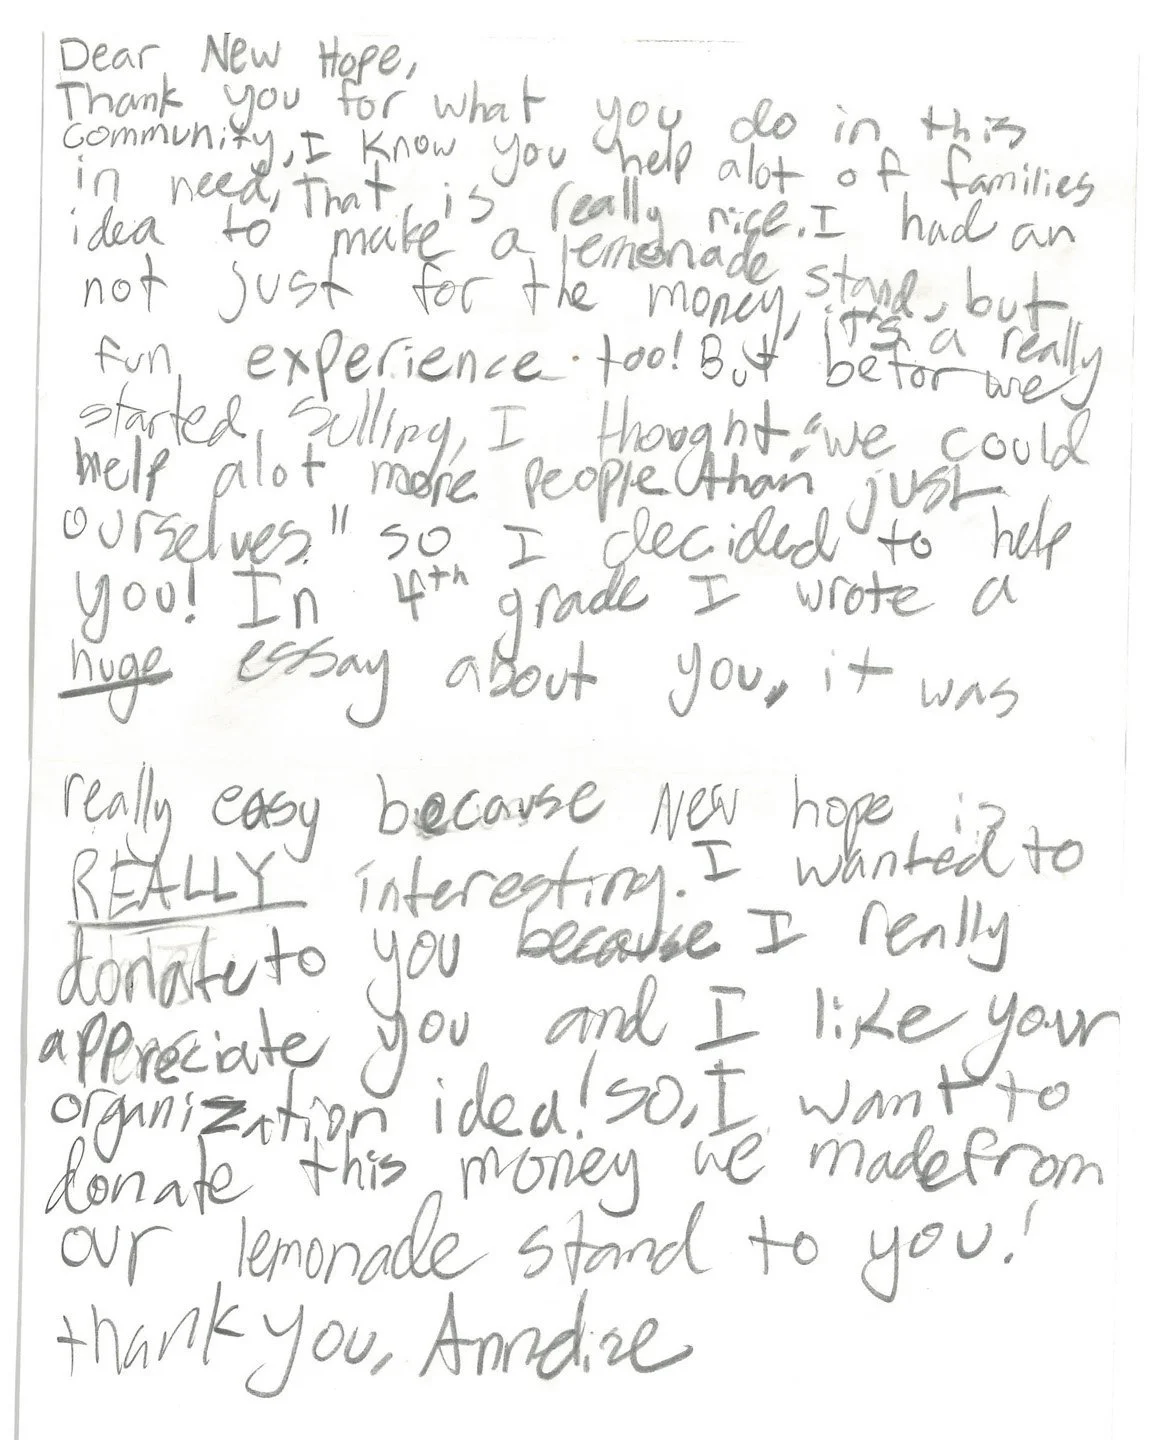 Dear New Hope,
Thank you for what you do in this
community, I know you help alot of families
in need, that is really nice. I had an
idea to make a lemonade stand, but
not just for the money, it's a really
fun experience too! But befor we
started sulling, I thought "we could
help alot more people than just
ourselves" so I decided to help
you! In 4th grade I wrote a
huge essay about you, it was
really easy because New hope is
REALLY interesting. I wanted to
donate to you because I really
appreciate you and I like your
organization idea! so, I want to
donate this money we made from
our lemonade stand to you!
thank you,